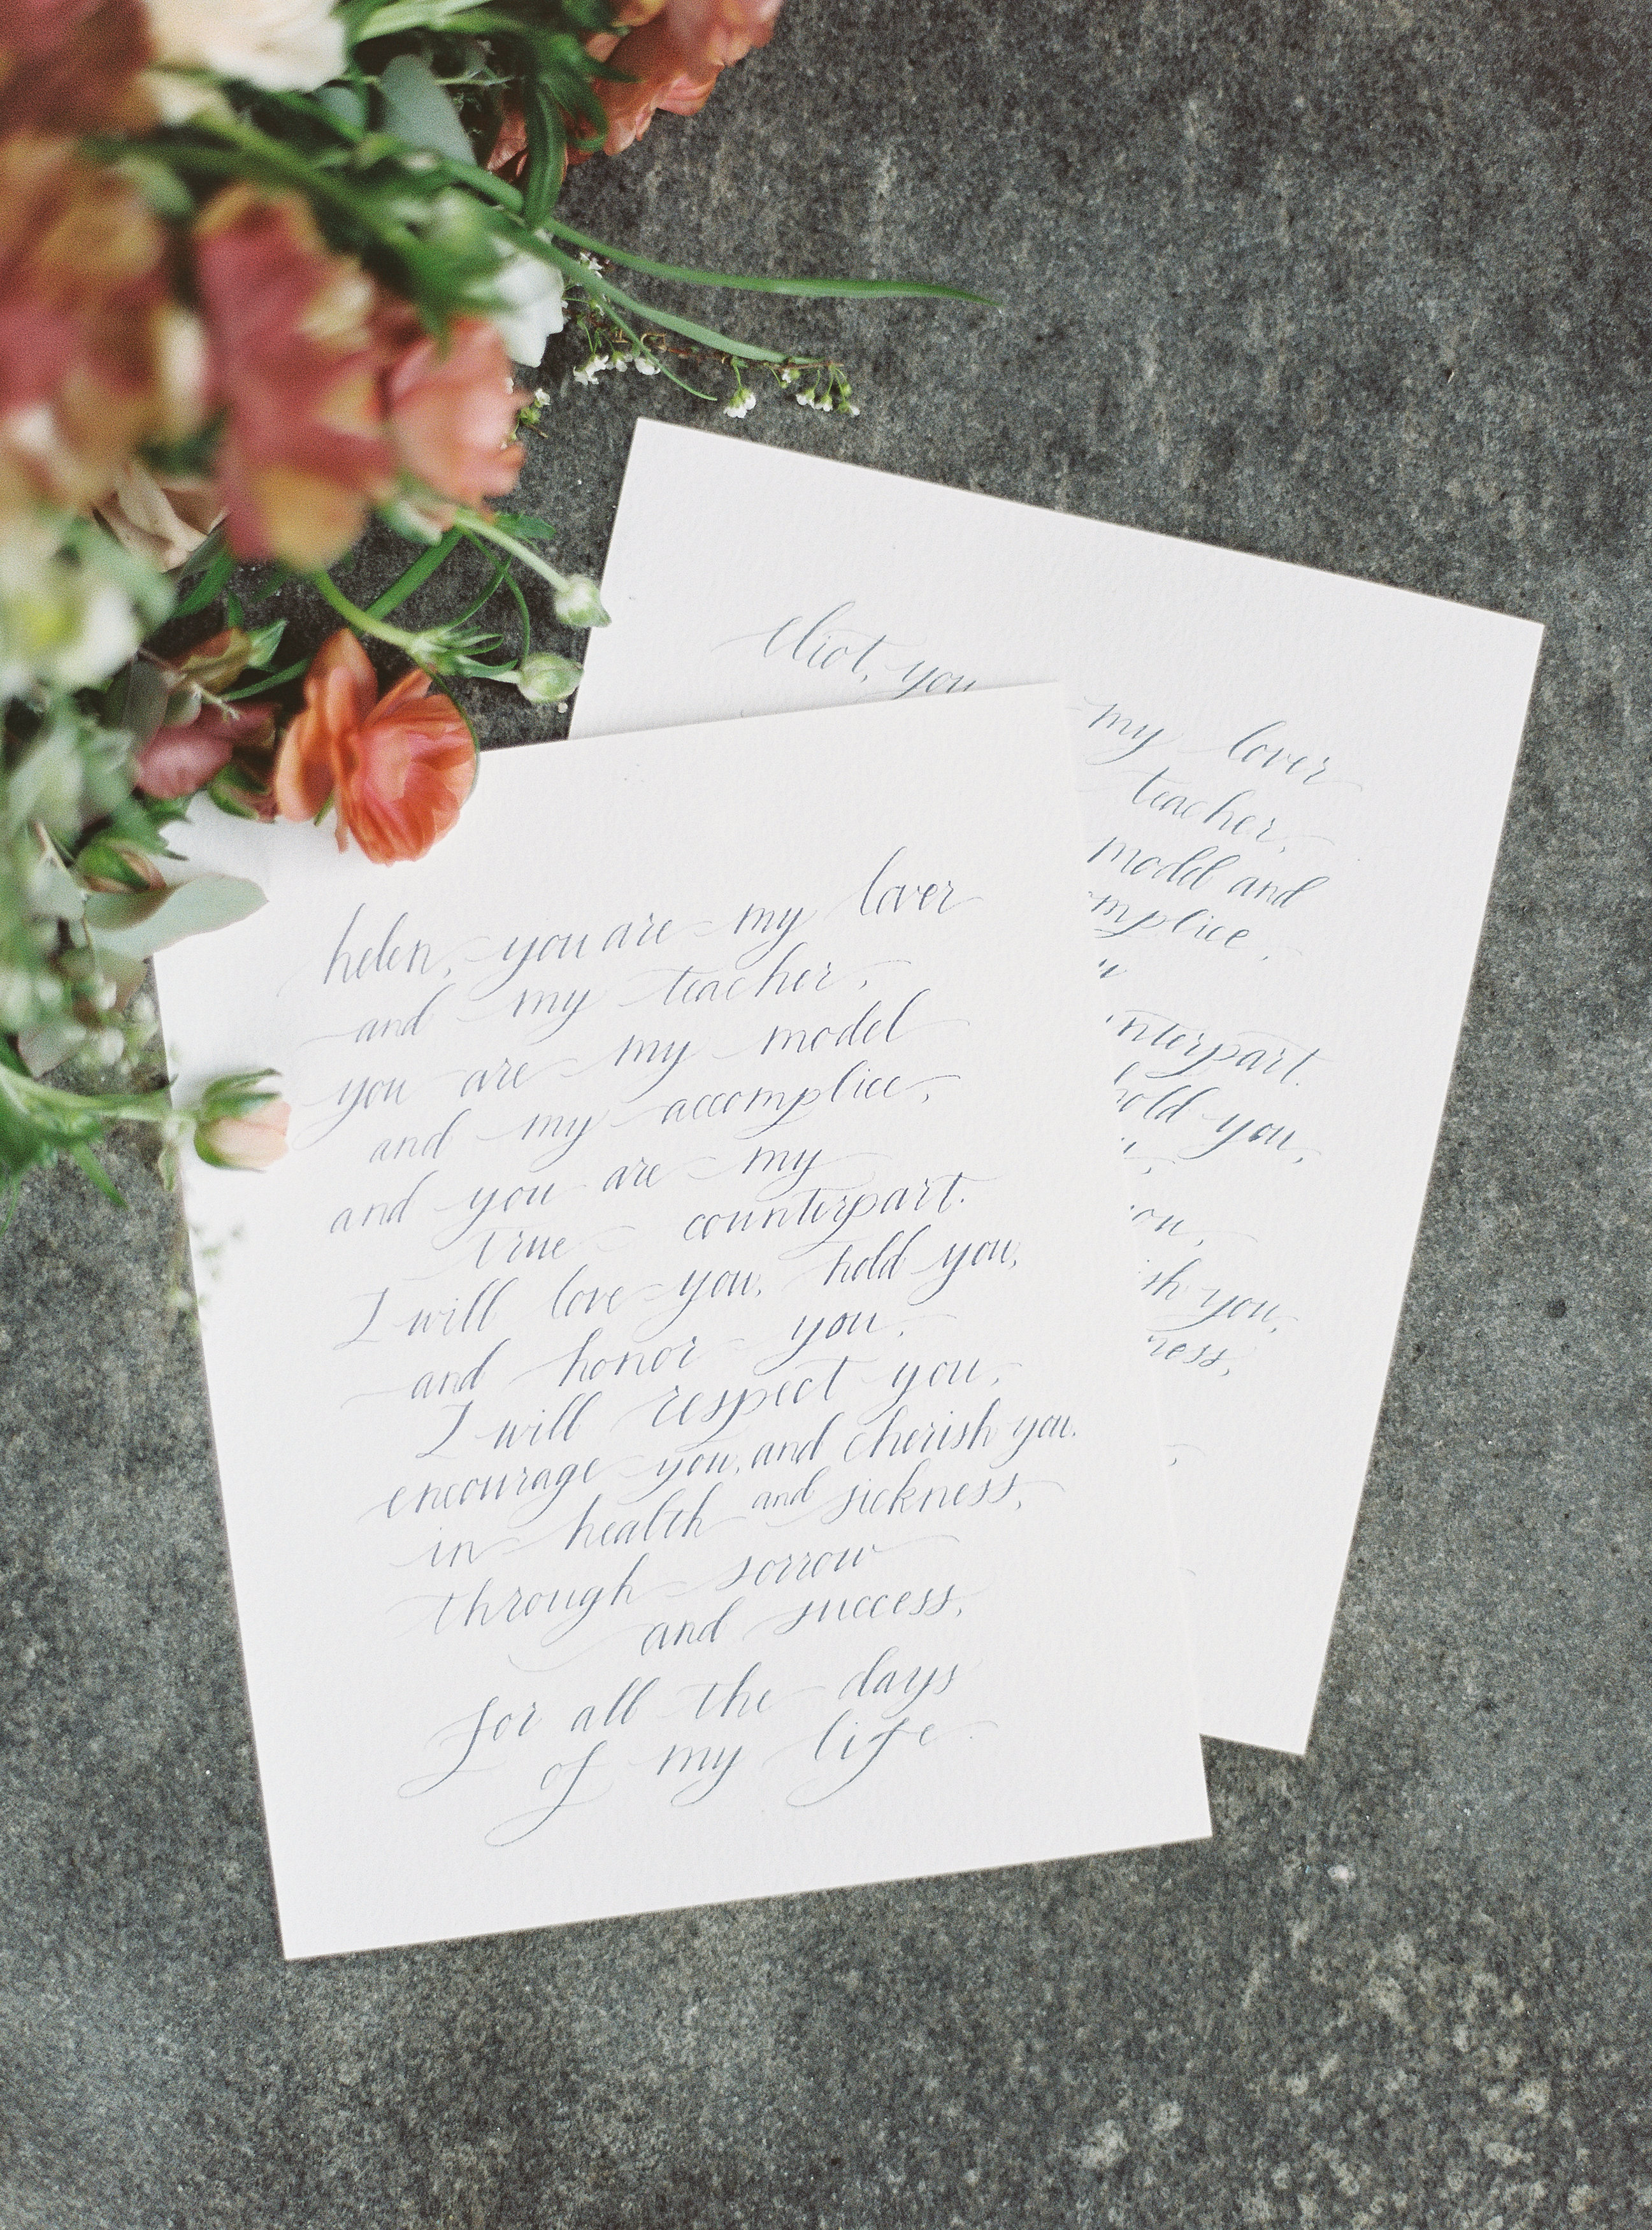 helen, you are my lover
and my teacher,
you are my model
and my accomplice,
and you are my
true counterpart.
I will love you, hold you,
and honor you.
I will respect you,
encourage you, and cherish you.
in health and sickness,
through sorrow
and success,
for all the days
of my life.
eliot, you
my lover
teacher,
model and
mplice,
u
nterpart.
hold you,
u,
ou,
ish you,
ness,